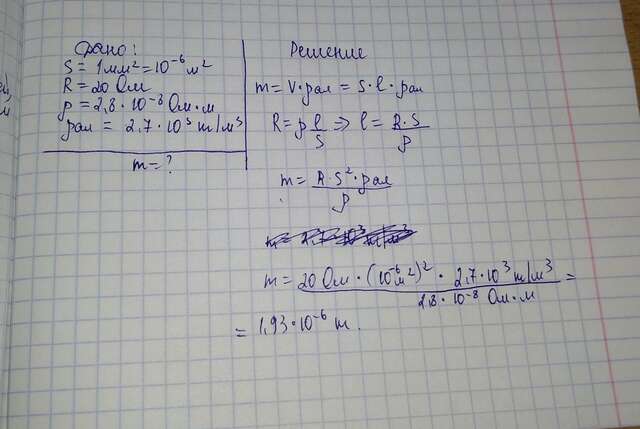 Дано:
S = 1мм² = 10⁻⁶ м²
R = 20 Ом
ρ = 2,8 · 10⁻⁸ Ом · м
ρал = 2,7 · 10³ т/м³
m = ?
Решение
m = V · ρал = S · l · ρал
R = ρ l/S ⇒ l = R·S/ρ
m = R·S²·ρал/ρ
m = 20 Ом · (10⁻⁶м²)² · 2,7 · 10³ т/м³ / 2,8 · 10⁻⁸ Ом · м =
= 1,93 · 10⁻⁶ т.